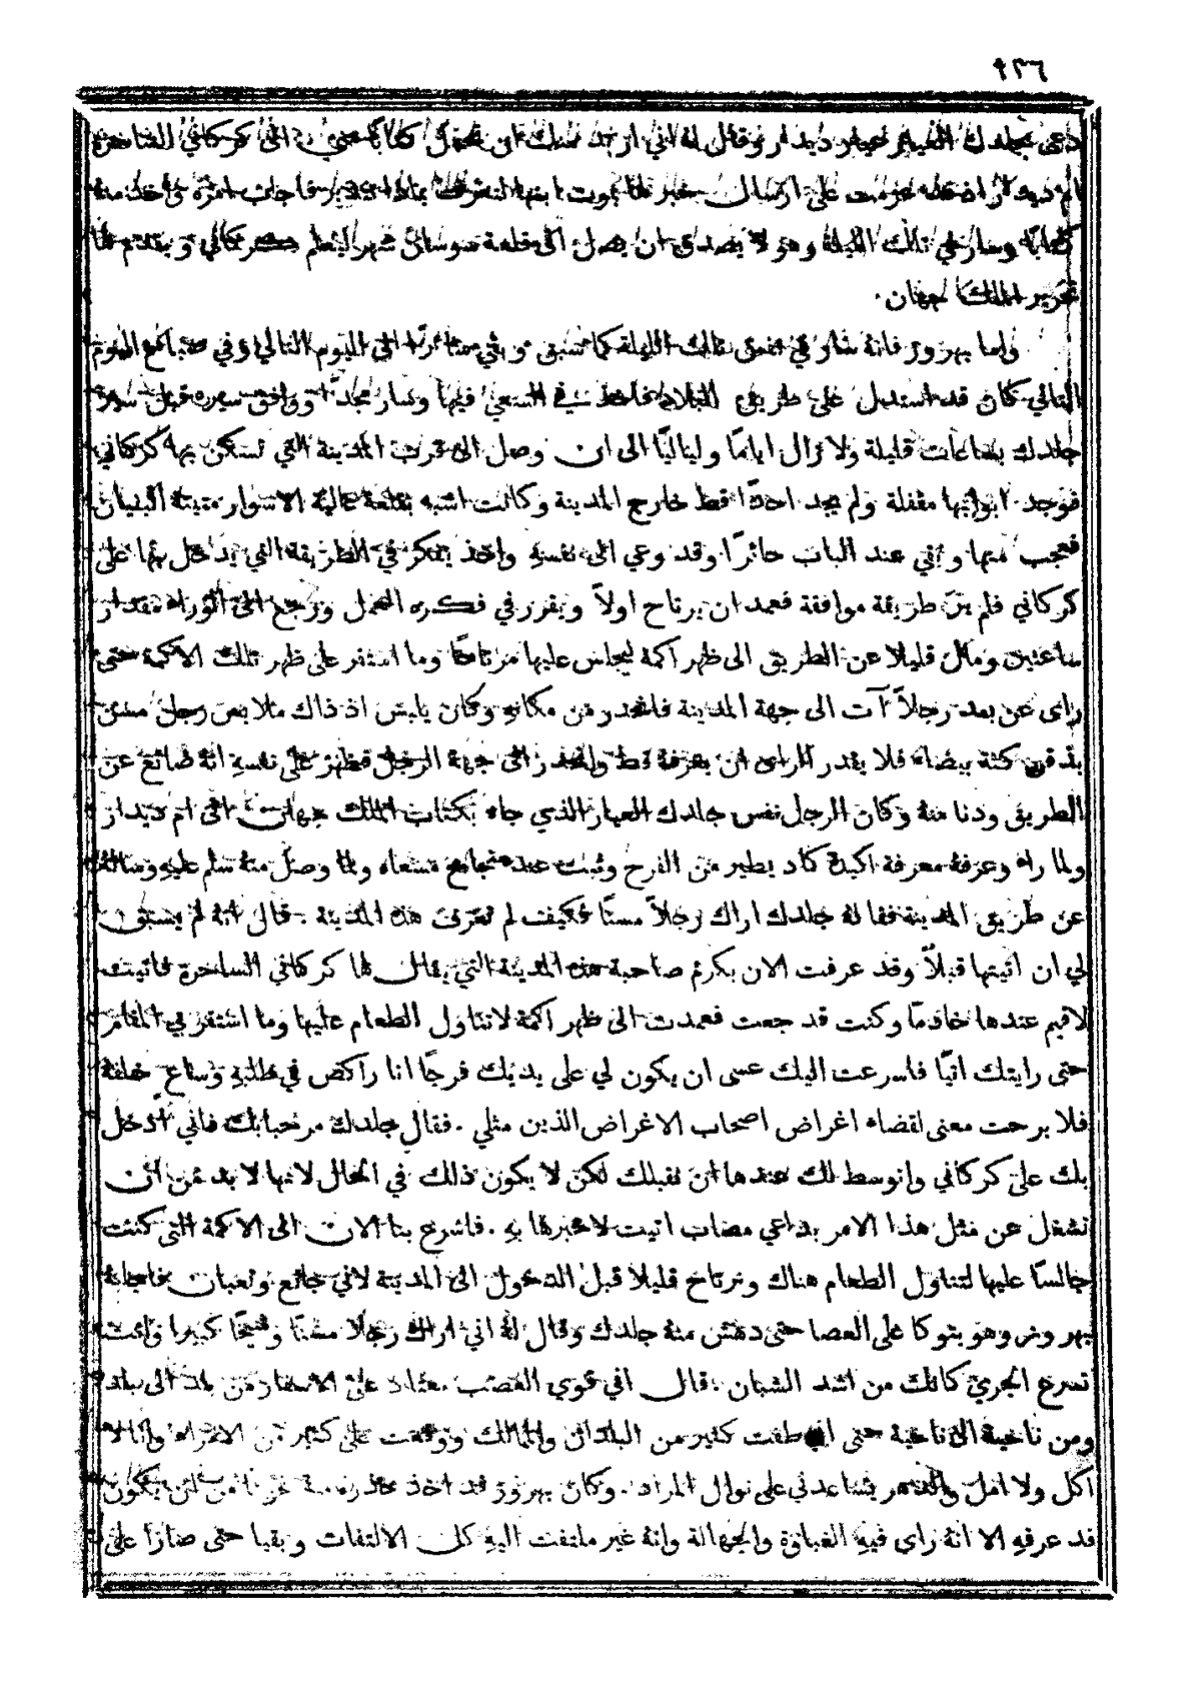 ٩٣٦
دعى بجلدك العيار عيار ديدار وقال له اني اريد منك ان تحمل كتابًا مني الى كركاني الساحرة
ام ديدار عزمت على ارسال خبر لها بموت ابنها لتعرف بماذا فاجاب امره واخذ منه
كتابه وسار في تلك الليلة وهو لا يصدق ان يصل الى قلعة سوسان شهر ليعلم كركاني ويقدم لها
تحرير الملك جهان.
واما بهروز فانه سار في نفس تلك الليلة كما سبق وبقي سائرًا الى اليوم التالي وفي صباح اليوم
التالي كان قد استدل على طريق البلاد فاخذ في السعي فيها وسار مجدًّا ووافق سيره قبل سير
جلدك بساعات قليلة ولا زال ايامًا ولياليًا الى ان وصل الى قرب المدينة التي تسكن بها كركاني
فوجد ابوابها مقفلة ولم يجد احدًا قط خارج المدينة وكانت اشبه بقلعة عالية الاسوار متينة البنيان
فعجب منها وبقي عند الباب حائرًا وقد وعي الى نفسهِ واخذ يفتكر في الطريقة التي يدخل بها على
كركاني فلم يرَ طريقة موافقة فعمد ان يرتاح اولاً ويقرر في فكره العمل ورجع الى الوراء مقدار
ساعتين ومال قليلا عن الطريق الى ظهر اكمة ليجلس عليها مرتاحًا وما استقر على ظهر تلك الاكمة حتى
راى عن بعد رجلاً آت الى جهة المدينة فانحدر من مكانهِ وكان يلبس اذ ذاك ملابس رجل مسن
بذقن كثة بيضاء فلا يقدر الرائي ان يعرفهُ قط وانحدر الى جهة الرجل فظهر على نفسهِ انهُ ضائع عن
الطريق ودنا منهُ وكان الرجل نفس جلدك العيار الذي جاء بكتاب الملك جهان الى ام ديدار
ولما راه وعرفهُ معرفة اكيدة كاد يطير من الفرح وثبت عنده نجاح مسعاه ولما وصل منهُ سلم عليهِ وسالهُ
عن طريق المدينة فقال لهُ جلدك اراك رجلاً مسنًّا فكيف لم تعرف هذه المدينة. قال انهُ لم يسبق
لي ان اتيتها قبلاً وقد عرفت الان بكرم صاحبة هذه المدينة التي يقال لها كركاني الساحرة فاتيت
لاقيم عندها خادمًا وكنت قد جعت فعمدت الى ظهر اكمة لاتناول الطعام عليها وما استقر بي المقام
حتى رايتك اتيًا فاسرعت اليك عسى ان يكون لي على يديك فرجًا انا راكض في طلبهِ وساعٍ خلفهُ
فلا برحت معنى لقضاء اغراض اصحاب الاغراض الذين مثلي. فقال جلدك مرحبا بك فاني أدخل
بك على كركاني واتوسط لك عندها ان تقبلك لكن لا يكون ذلك في الحال لانها لا بد من ان
تشغل عن مثل هذا الامر بداعي مصاب اتيت لاخبرها بهِ. فاسرع بنا الان الى الاكمة التي كنت
جالسًا عليها لنتناول الطعام هناك ونرتاح قليلا قبل الدخول الى المدينة لاني جائع وتعبان فاجابهُ
بهروز وهو يتوكا على العصا حتى دهش منهُ جلدك وقال لهُ اني اراك رجلًا مسنًّا وشيخًا كبيرا وانت
تسرع الجري كانك من اشد الشبان. قال اني قوي العصب معتاد على الاسفار من بلد الى بلد
ومن ناحية الى ناحية حتى اني طفت كثير من البلدان والممالك ووقعت على كثير من الامراء وانا لا
اكل ولا امل والدهر يساعدني على نوال المراد. وكان بهروز قد اخذ حذره من ان يكون
قد عرفهِ الا انهُ راى فيهِ الغباوة والجهالة وانهُ غير ملتفت اليهِ كل الالتفات وبقيا حتى صارا على